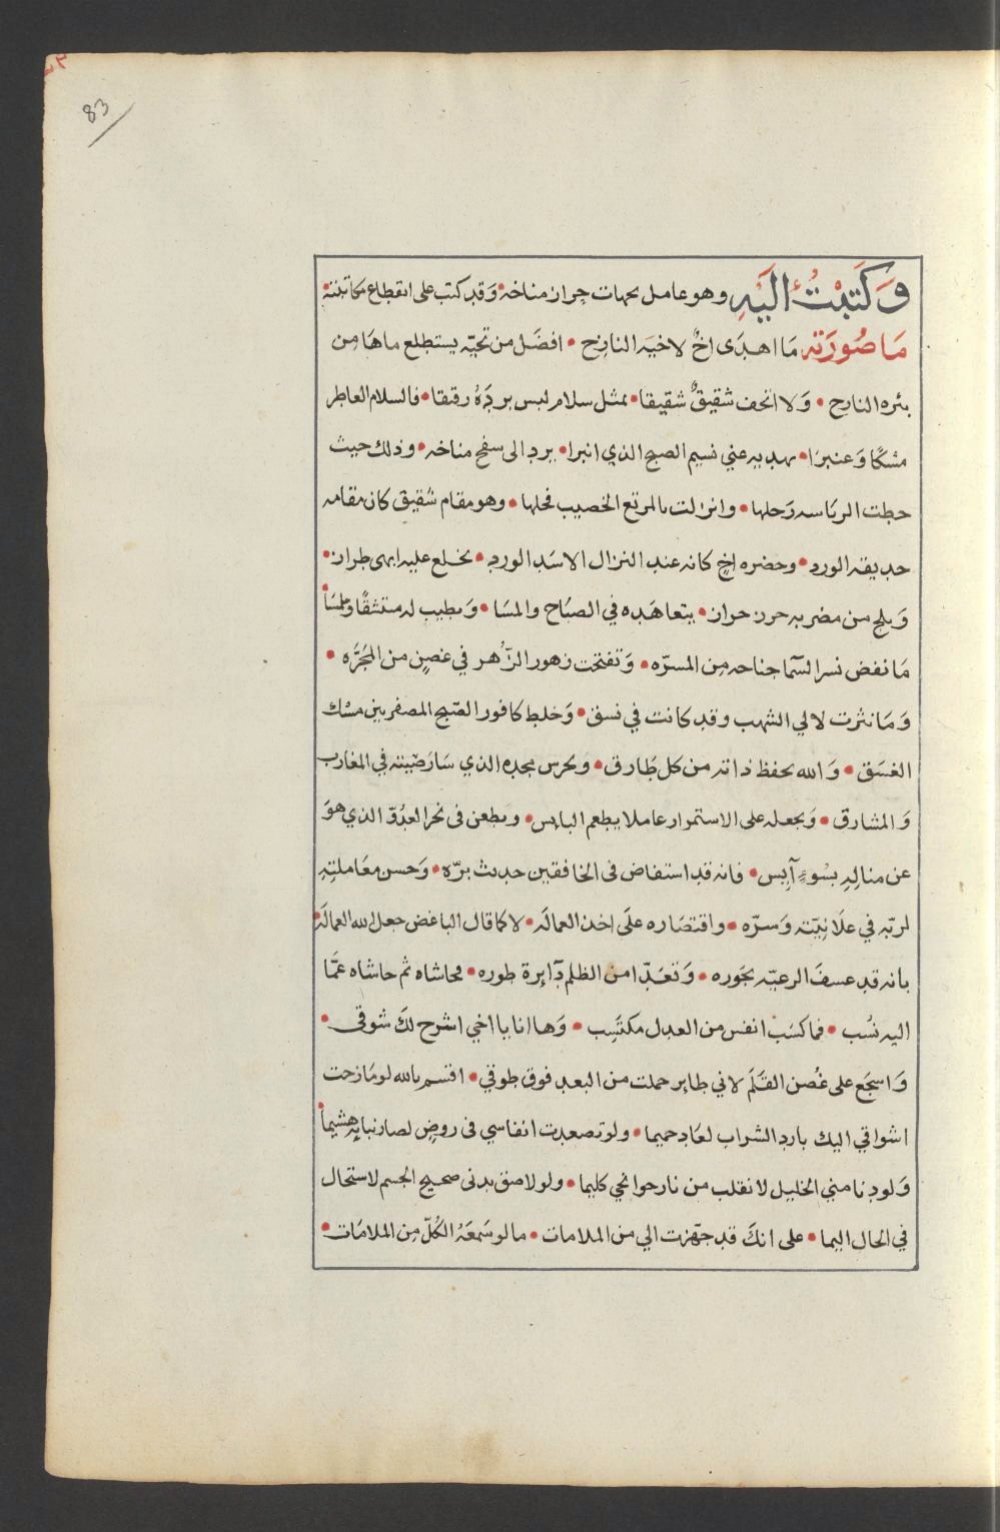 83
وَكَتَبْتُ اليَهِ وهو عامل بجهات جوار مناخه وقد كتب على انقطاع مكاتبته
مَا صُورَته مَا اهدَى اخٌ لاخيه النازح • افضَل من تحيّه يستطلع ماهَا مِن
بئره النازح • وَلا اتحف شقيقٌ شقيقا • بمثل سلام لبس بردَهُ رقيقا • فالسلام العاطر
مسْكًا وَعنبرَا • يهديه عني نسيم الصبح الذي انبرا • يرد الى سفح مناخه • وذلك حيث
حطت الرياسه رَحلها • وانزلت بالمرتع الخصيب فحلها • وهو مقام شقيق كان مقامه
حديقه الورد • وحضره اخٍ كانه عند النزال الاسَد الورد • يخلع عليه ابهى طراز •
وَيلج من مضربه حرز حراز • يتعاهَده في الصبَاح والمسَا • وَيطيب له مستنشقًا وملمسَا
مَا نفض نسر السّما جناحه مِن المسرّه • وَتفتحت زهور الزُّهر في غصنٍ من المجرَّه •
وَمَا نثرت لالي الشهب وقد كانت في نسق • وَخلط كافور الصّبح المصفر بين مسْك
الغسَق • وَالله يحفظ ذاته من كل طَارق • ويحرس مجده الذي سَارَ صِيته في المغارب
وَالمشارق • وَيجعله على الاستمرار عاملا يطعم البايس • ويطعن في نحر العدُوّ الذي هوَ
عن منالِهِ بسُوءٍ آيس • فانه قد استفاض في الخافقين حديث برّه • وَحسن معَاملتِهِ
لربّه في علَانِيَته وَسرّه • واقتصَاره علَى اخذ العمالَه • لا كما قال الباغض جعل الله العمالَه
بانه قد عسفَ الرعيّه بجَوره • وَتعَدّا من الظلم دَآيرة طوره • فحاشاه ثم حاشاه عمَّا
اليه نسُب • فما كسَب انفس من العدل مكتسِب • وَها انا يا اخي اشرح لكَ شوقي •
وَاسجَع على غُصن القَلَم لاني طاير حملت من البعد فوق طوقي • اقسم بالله لو مَازحت
اشواقي اليك بارد الشراب لعَاد حميما • ولو تصعدت انفاسي في روضٍ لصار نباته هشيماً
وَلو دنا مني الخليل لانقلب من نار جوانحي كليما • ولو لاصق بدني صحيح الجسم لاستحال
في الحال اليما • على انكَ قد جهّزت الي من الملامات • ما لو سَمعَهُ الكُلّ مِن الملامَات •